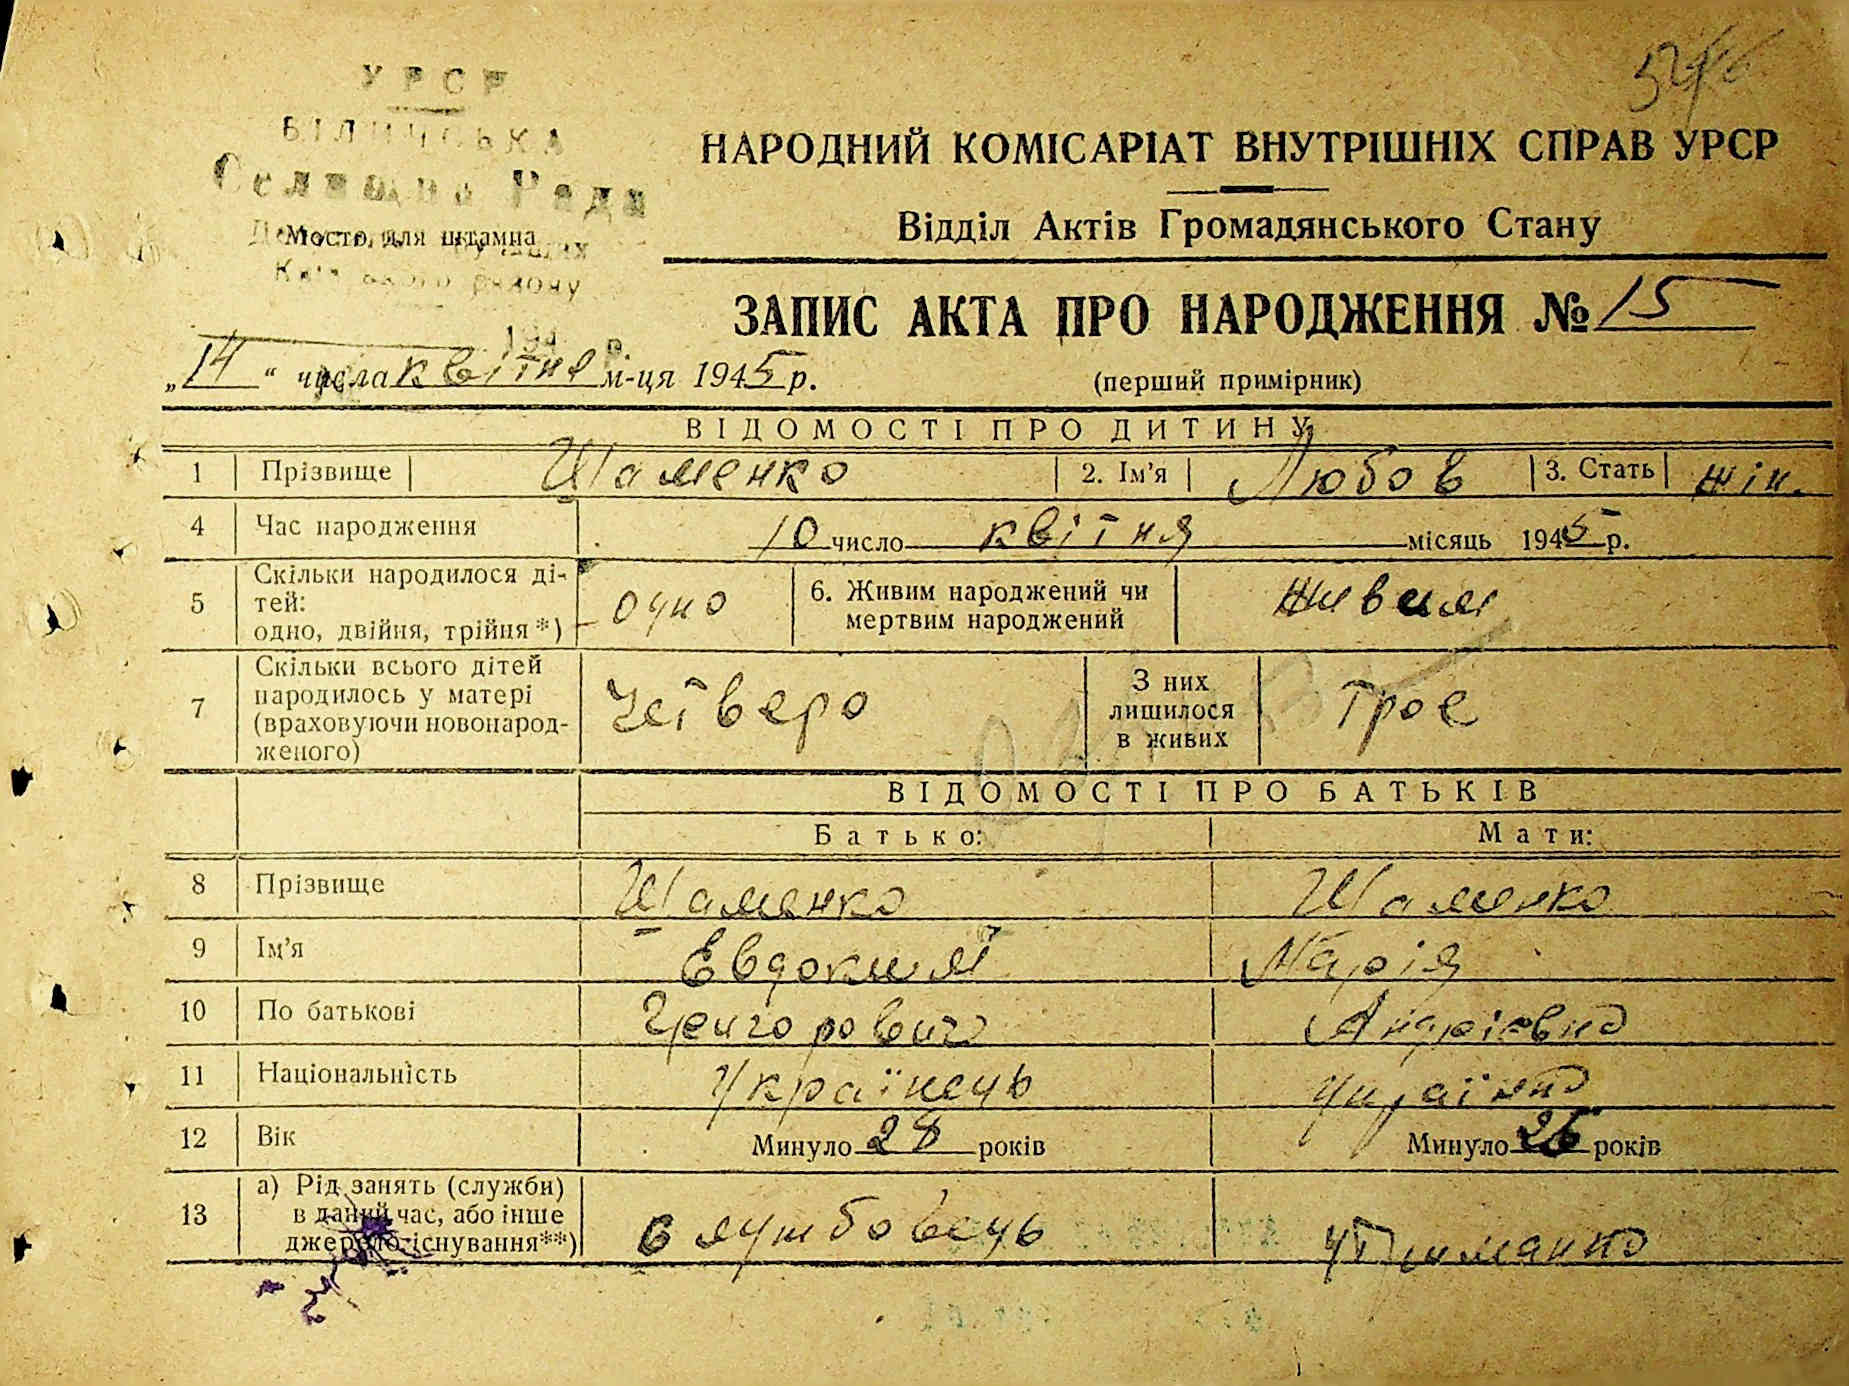 УРСР
БІЛИЧСЬКА
Селищна Рада
Місто для штампа
Київського району
НАРОДНИЙ КОМІСАРІАТ ВНУТРІШНІХ СПРАВ УРСР
Відділ Актів Громадянського Стану
ЗАПИС АКТА ПРО НАРОДЖЕННЯ № 15
„14“ числа квітня м-ця 1945 р.
(перший примірник)
ВІДОМОСТІ ПРО ДИТИНУ
1 Прізвище Шаменко 2. Ім’я Любов 3. Стать жін.
4 Час народження 10 число квітня місяць 1945 р.
5 Скільки народилося ді-
тей:
одно, двійня, трійня*) одно 6. Живим народжений чи
мертвим народжений Живим
7 Скільки всього дітей
народилось у матері
(враховуючи новонарод-
женого) Четверо З них
лишилося
в живих Троє
ВІДОМОСТІ ПРО БАТЬКІВ
Батько: Мати:
8 Прізвище Шаменко Шаменко
9 Ім’я Евдоким Марія
10 По батькові Григорович Андріївна
11 Національність Українець Українка
12 Вік Минуло 28 років Минуло 26 років
13 а) Рід занять (служби)
в даний час, або інше
джерело існування**) Службовець Утриманка